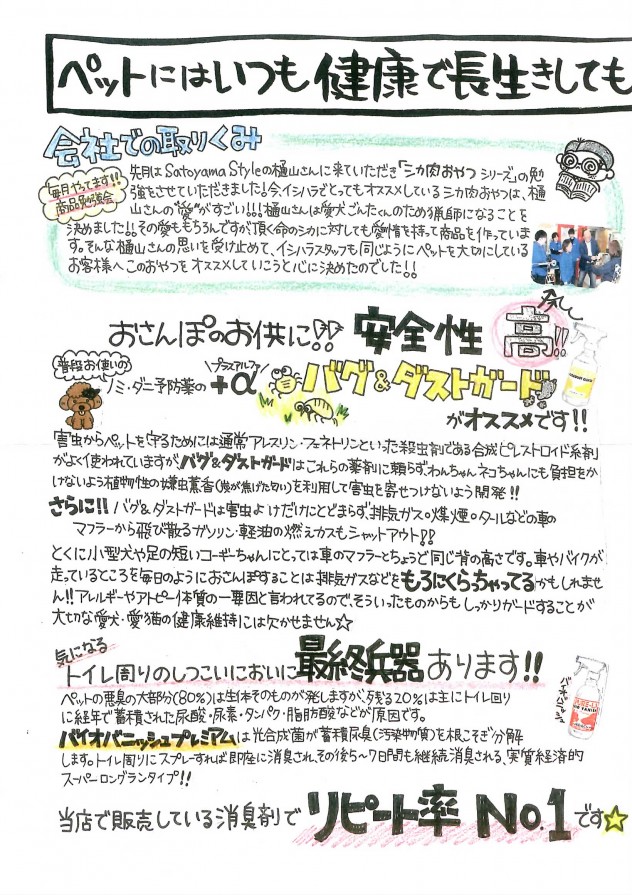 ペットにはいつも健康で長生きしても
会社での取りくみ
毎月やってます!!
商品勉強会
先月は Satoyama Styleの樋山さんに来ていただき「シカ肉おやつ シリーズ」の勉
強もさせていただきました!今、イシハラでとってもオススメしているシカ肉おやつは、樋
山さんの“愛”がすごい!!!樋山さんは愛犬ごんたくんのため猟師になることを
決めました!!その愛ももちろんですが頂く命のシカに対しても愛情を持て商品を作っていま
す。そんな樋山さんの思いを受け止めて、イシハラスタッフも同じようにペットを大切にしている
お客様へこのおやつをオススメしていこうと心に決めたのでした!!
おさんぽのお供に!! 安全性 高!!
普段お使いの
ノミ・ダニ予防薬の
プラスアルファ
+α
バグ&ダストガード
がオススメです!!
害虫からペットを守るためには通常アレスリン・フェネトリンといった殺虫剤である合成ピレストロイド系剤
がよく使われていますが、バグ&ダストガードはこれらの薬剤に頼らずわんちゃん ネコちゃんにも負担をか
けないよう植物性の嫌虫薫香(炭が焦げた匂い)を利用して害虫を寄せつけないよう開発!!
さらに!! バグ&ダストガードは害虫よけだけにとどまらず、排気ガス・煤煙・タールなどの車の
マフラーから飛び散るガソリン・軽油の燃えカスもシャットアウト!!
とくに小型犬や足の短いコーギーちゃんにとっては車のマフラーとちょうど同じ背の高さです。車やバイクが
走っているところを毎日のようにおさんぽすることは排気ガスなどをもろにくらっちゃってるかもしれませ
ん!!アレルギーやアトピー体質の一要因と言われてるので、そういったものからもしっかりガードすることが
大切な愛犬・愛猫の健康維持には欠かせません☆
気になる
トイレ周りのしつこいにおいに最終兵器あります!!
バイオバニッシュ
ペットの悪臭の大部分(80%)は生体そのものが発しますが、残る20%は主にトイレ回り
に経年で蓄積された尿酸・尿素・タンパク・脂肪酸などが原因です。
バイオバニッシュプレミアムは光合成菌が蓄積尿臭(汚染物質)を根こそぎ分解
します。トイレ周りにスプレーすれば即座に消臭され、その後5〜7日間も継続消臭される、実質経済的
スーパーロングランタイプ!!
当店で販売している消臭剤で リピート率 No.1です☆